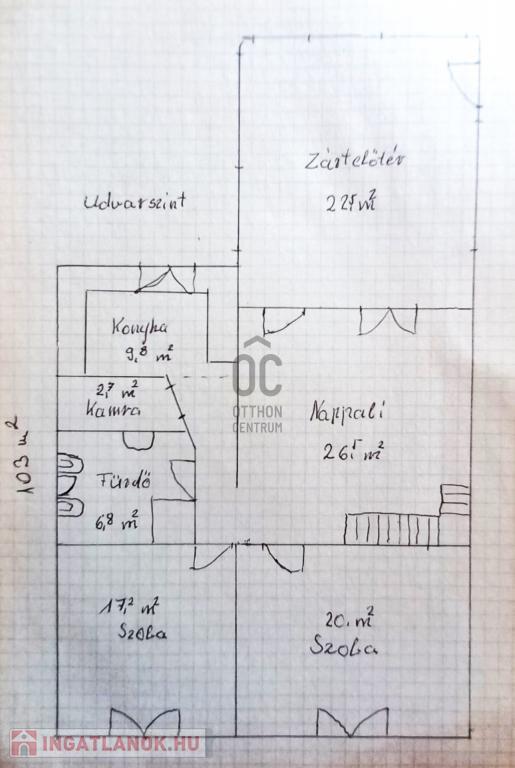 Zártelőtér
22,5 m²
Udvarszint
Konyha
9,8 m²
2,7 m²
Kamra
ÓC
OTTHON
CENTRUM
Nappali
26,5 m²
103 m²
Fürdő
6,8 m²
17,2 m²
Szoba
20. m²
Szoba
INGATLANOK.HU